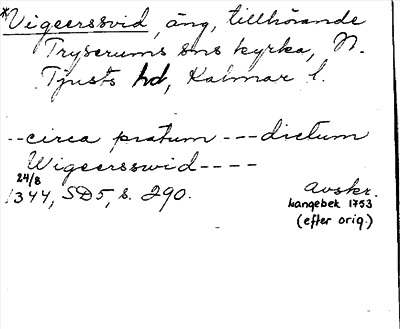 *Vigeerssvid, äng, tillhörande
Tryserums sns kyrka, N.
Tjusts hd, Kalmar l.
--circa pratum --- dictum
Wigeersswid ----
24/8
1344, SD5, s. 290.
Avskr.
Langebek 1753
(efter orig.)